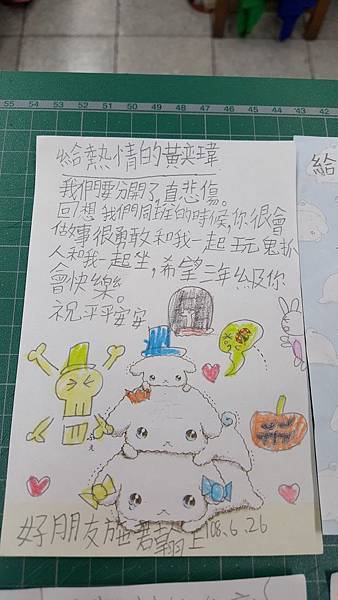 55 54 53 52 51 50 49 48 47 46 45 44 43 42
給熱情的黃奕瑋
我們要分開了,真悲傷。
回想我們同班的時候,你很會
做事很勇敢和我一起玩鬼抓
人和我一起坐,希望三年級你
會快樂。
祝平平安安
好朋友施君翰上108.6.26
給